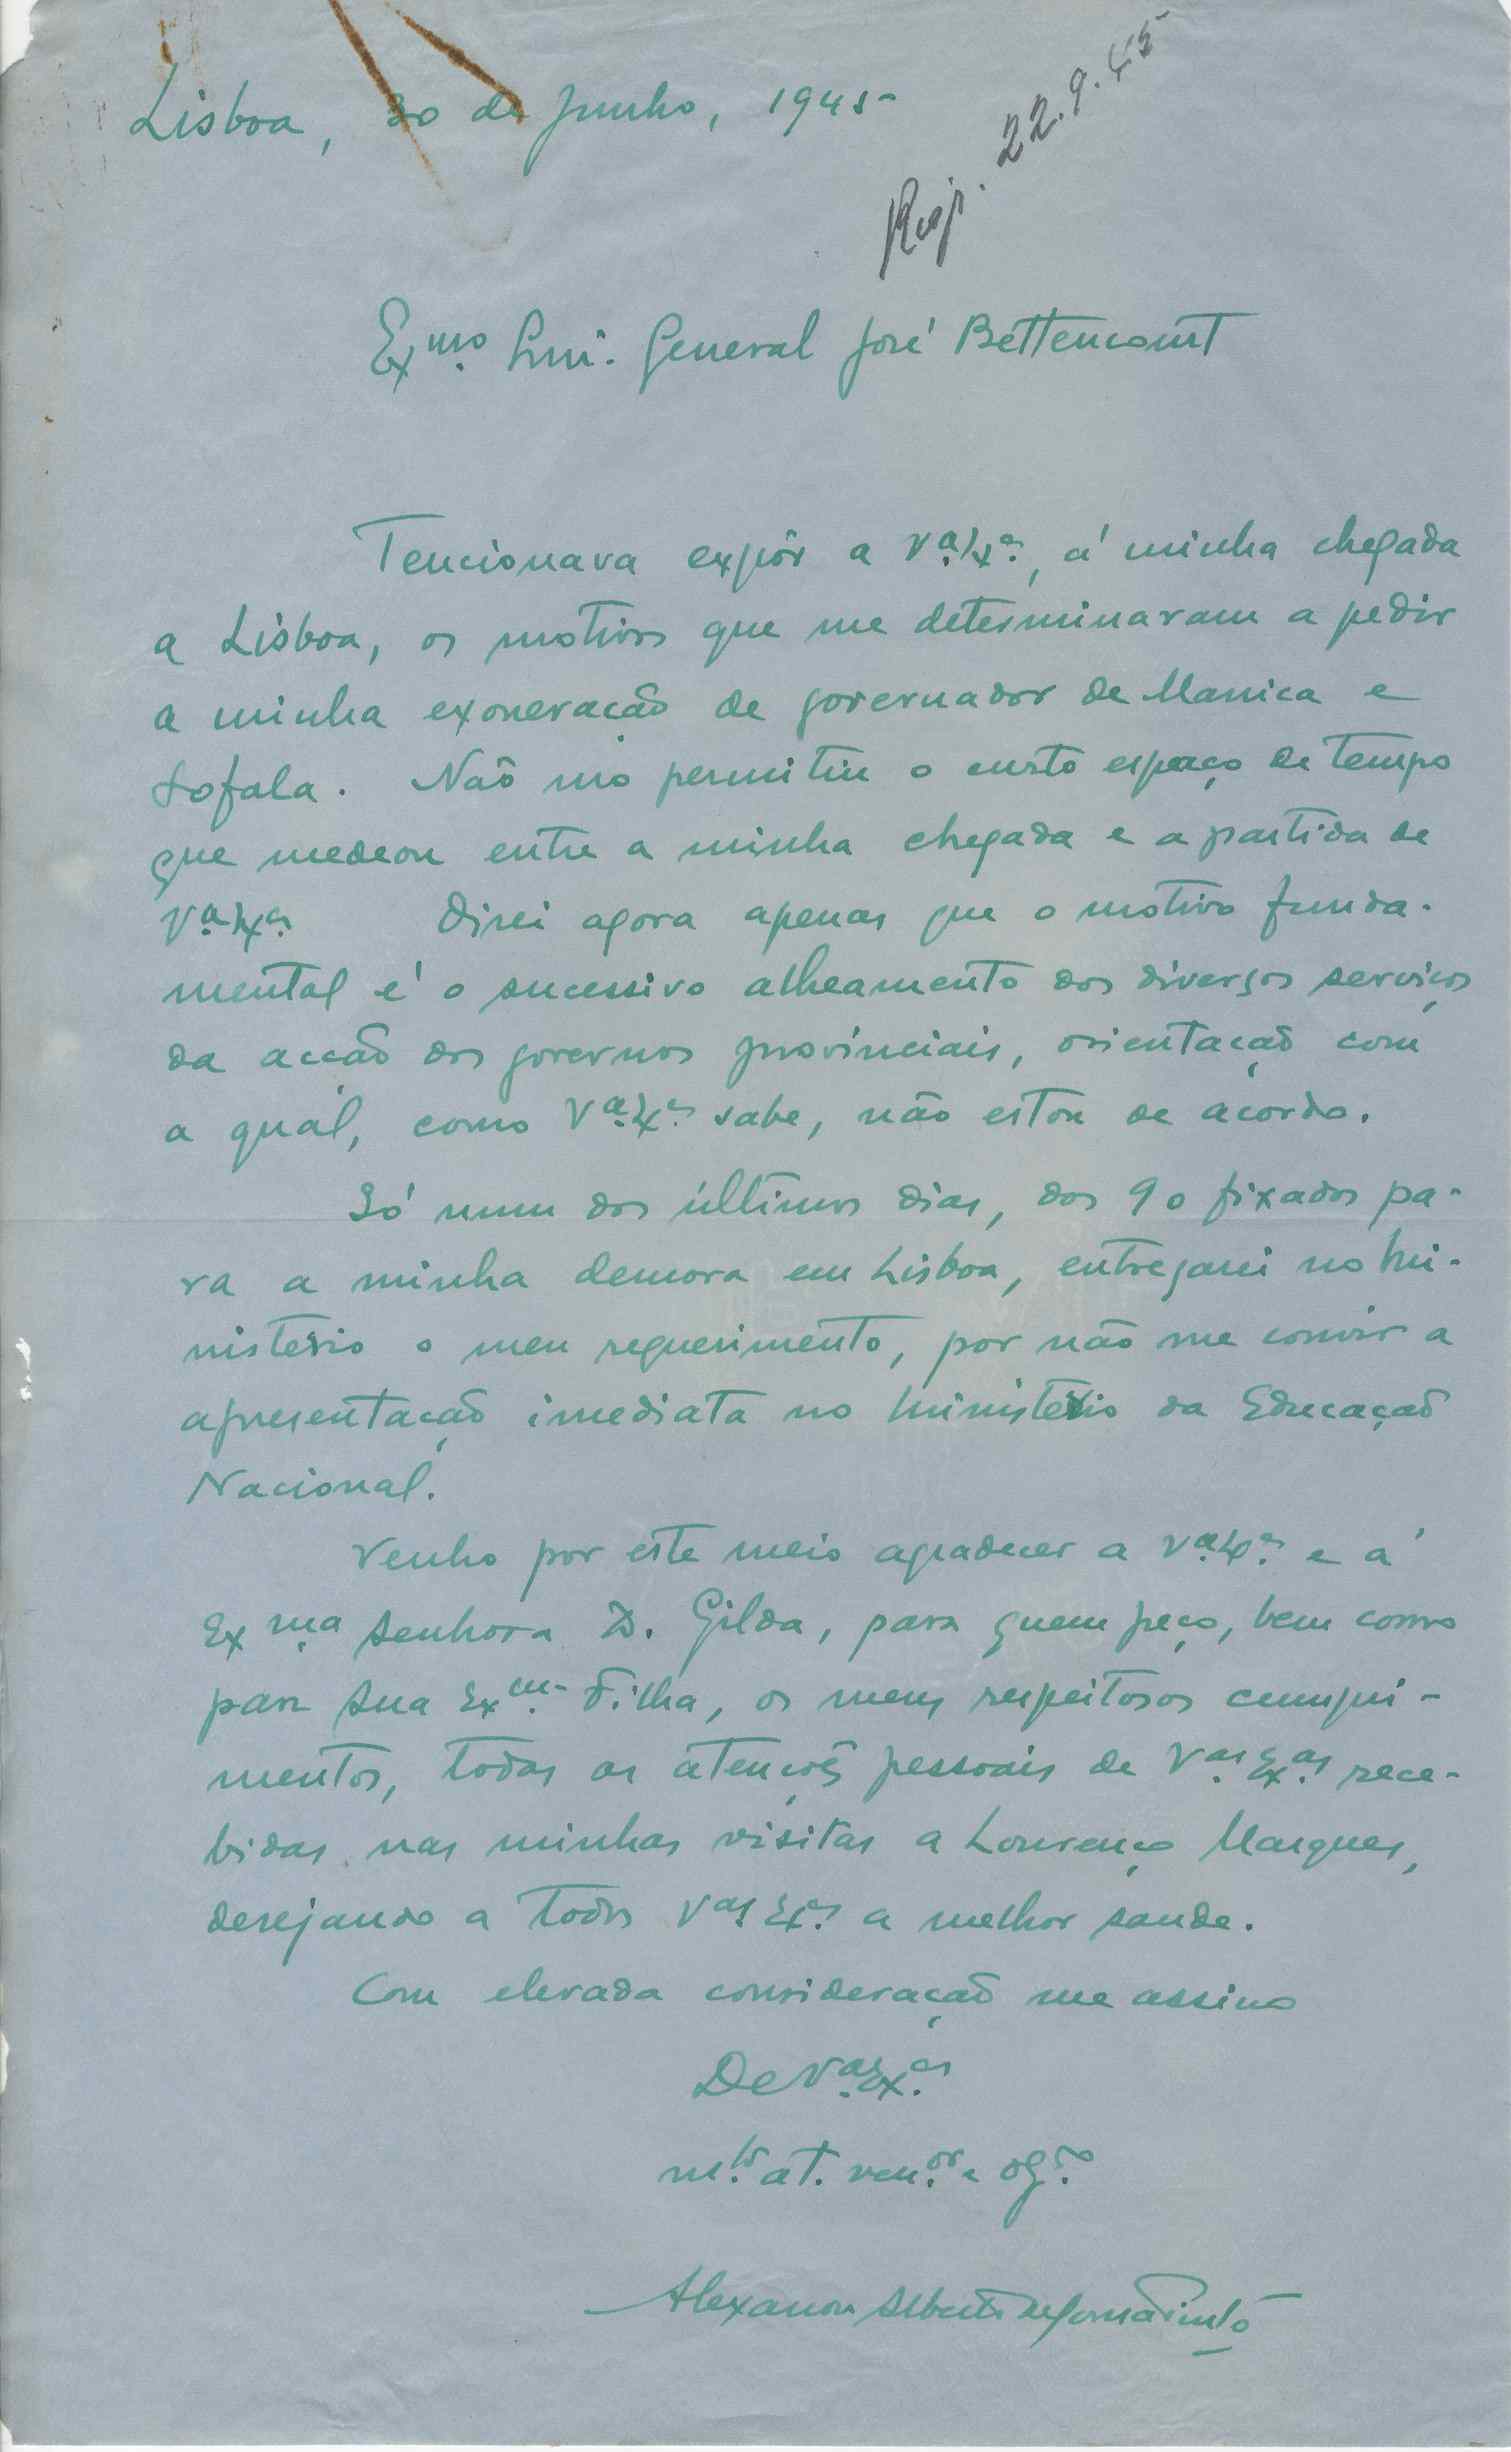 Lisboa, 30 de Junho, 1945
Resp. 22.9.45
Exmo Snr. General José Bettencourt
Tencionava expôr a Va. Exa., á minha chegada
a Lisboa, os motivos que me determinavam a pedir
a minha exoneração de governador de Manica e
Sofala. Não mo permitiu o curto espaço de tempo
que medeou entre a minha chegada e a partida de
Va. Exa. Direi agora apenas que o motivo funda-
mental é o sucessivo alheamento dos diversos serviços
da acção dos governos provinciais, orientação com
a qual, como Va. Exa. sabe, não estou de acordo.
Só num dos últimos dias, dos 90 fixados pa-
ra a minha demora em Lisboa, entregarei no Mi-
nistério o meu requerimento, por não me convir a
apresentação imediata no Ministério da Educação
Nacional.
Venho por este meio agradecer a Va. Exa. e á
Exma Senhora D. Gilda, para quem peço, bem como
para sua Exma. Filha, os meus respeitosos cumpri-
mentos, todas as atenções pessoais de Vas. Exas. rece-
bidas nas minhas visitas a Lourenço Marques,
desejando a todos Vas Exas. a melhor saude.
Com elevada consideração me assino
De Vas. Exas.
mto. at. venor. e ogdo.
Alexandre Alberto de Sousa Pinto